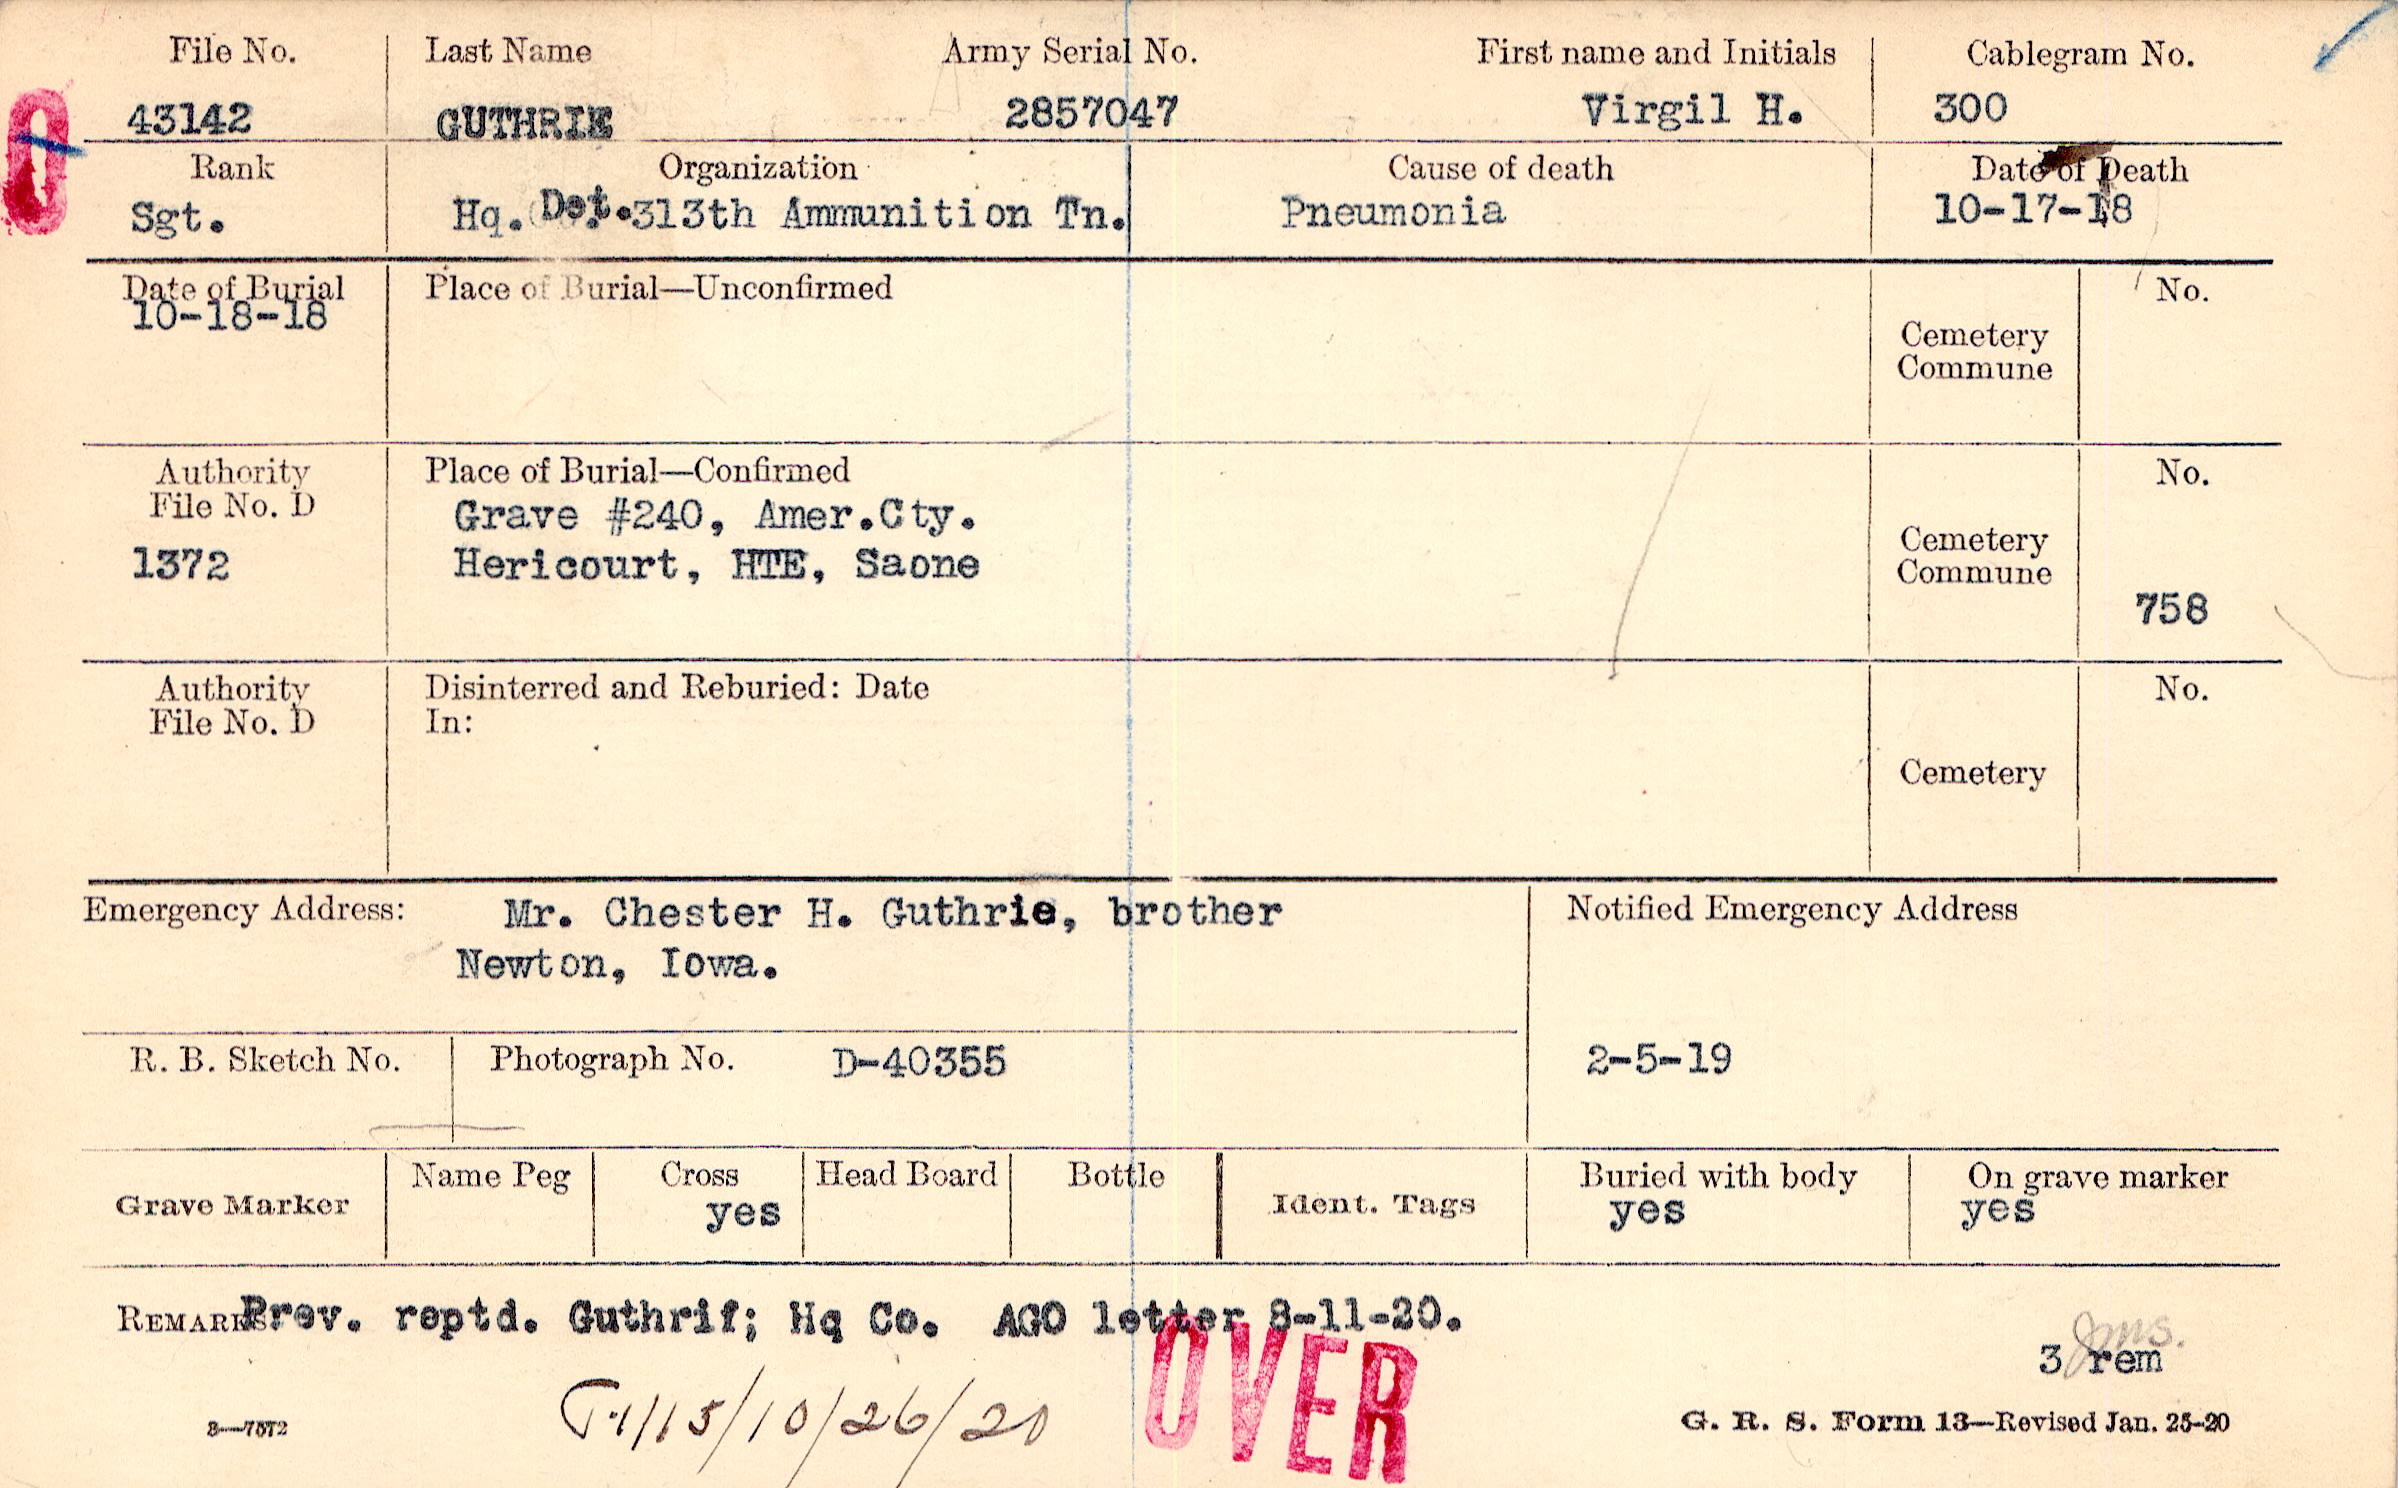 File No. Last Name Army Serial No. First name and Initials Cablegram No.
43142 GUTHRIE 2857047 Virgil H. 300
Rank Organization Cause of death Date of Death
Sgt. Hq. Det. 313th Ammunition Tn. Pneumonia 10-17-18
Date of Burial Place of Burial—Unconfirmed No.
10-18-18
Cemetery
Commune
Authority Place of Burial—Confirmed No.
File No. D
Grave #240, Amer.Cty.
1372 Hericourt, HTE, Saone
Cemetery
Commune
758
Authority Disinterred and Reburied: Date No.
File No. D In:
Cemetery
Emergency Address: Mr. Chester H. Guthrie, brother Notified Emergency Address
Newton, Iowa.
R. B. Sketch No. Photograph No. D-40355 2-5-19
Grave Marker Name Peg Cross Head Board Bottle Ident. Tags Buried with body On grave marker
yes yes yes
REMARKS: Prev. reptd. Guthrif; Hq Co. AGO letter 8-11-20.
OVER
3 rem
/15/10/26/20
3—7572 G. R. S. Form 13—Revised Jan. 25-20